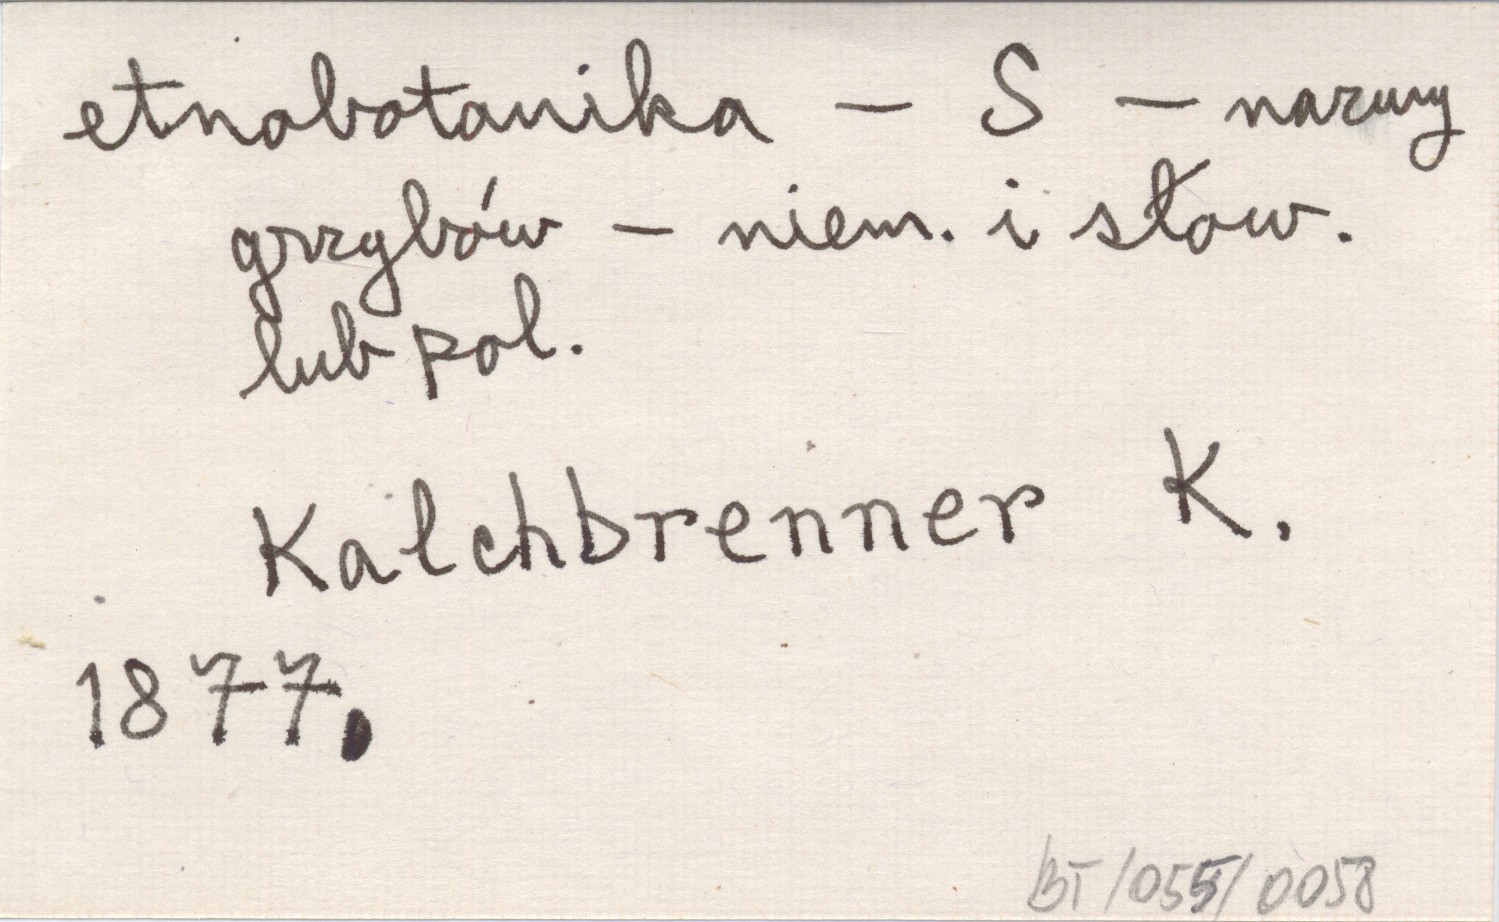 etnobotanika – S – nazwy
grzybów – niem. i słow.
lub pol.
Kalchbrenner K.
1877.
BT/055/0058